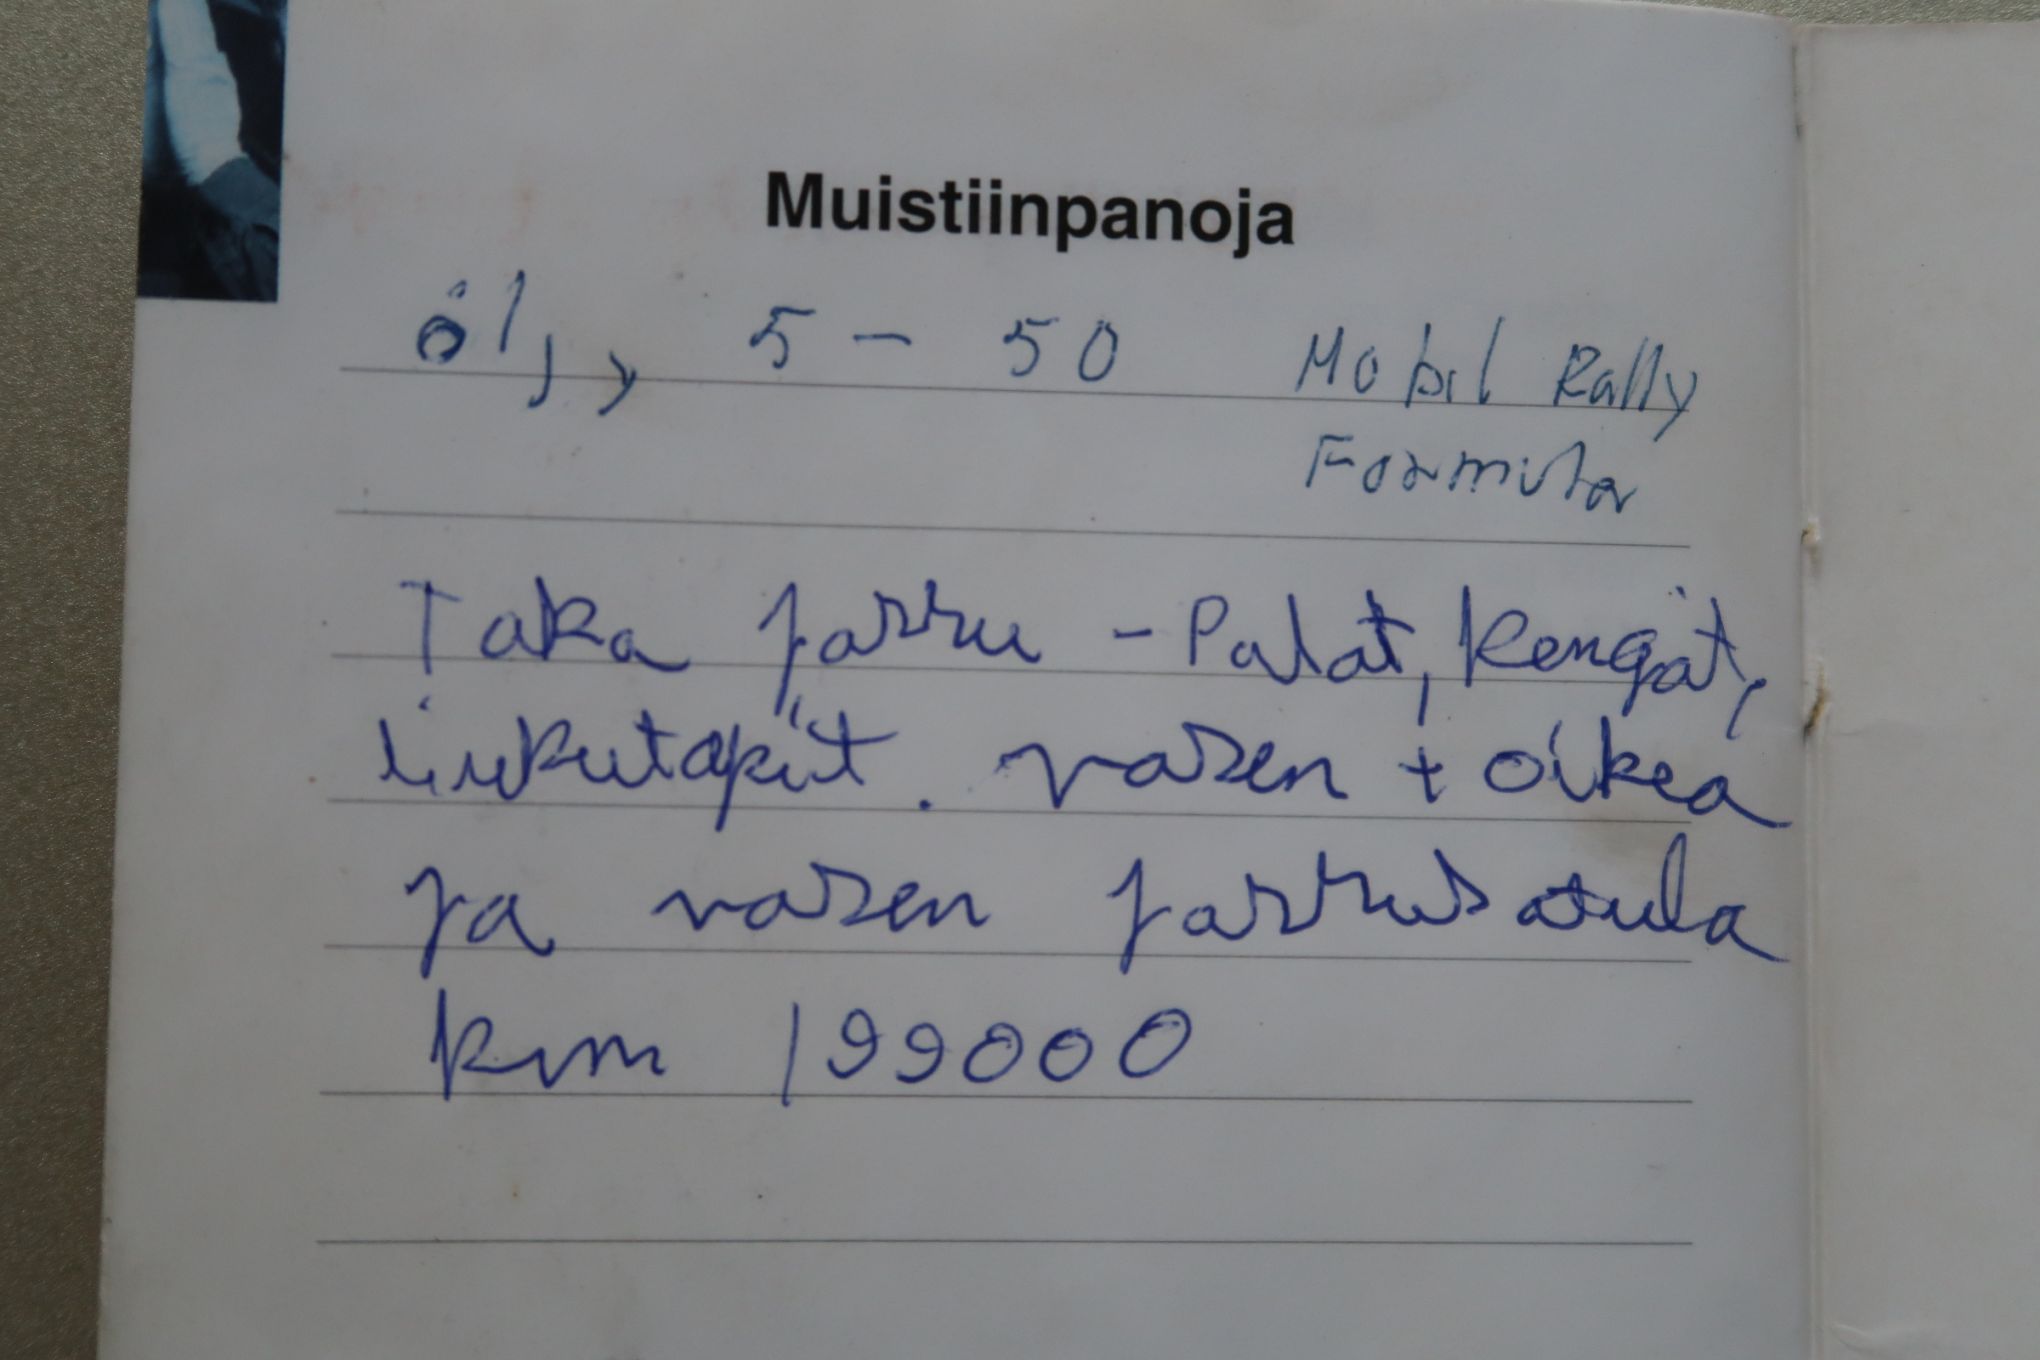 Muistiinpanoja
öljy 5 - 50 Mobil Rally
Formula
Taka jarru - Palat, kengät,
liukutapit. vasen + oikea
ja vasen jarrusatula
km 199000